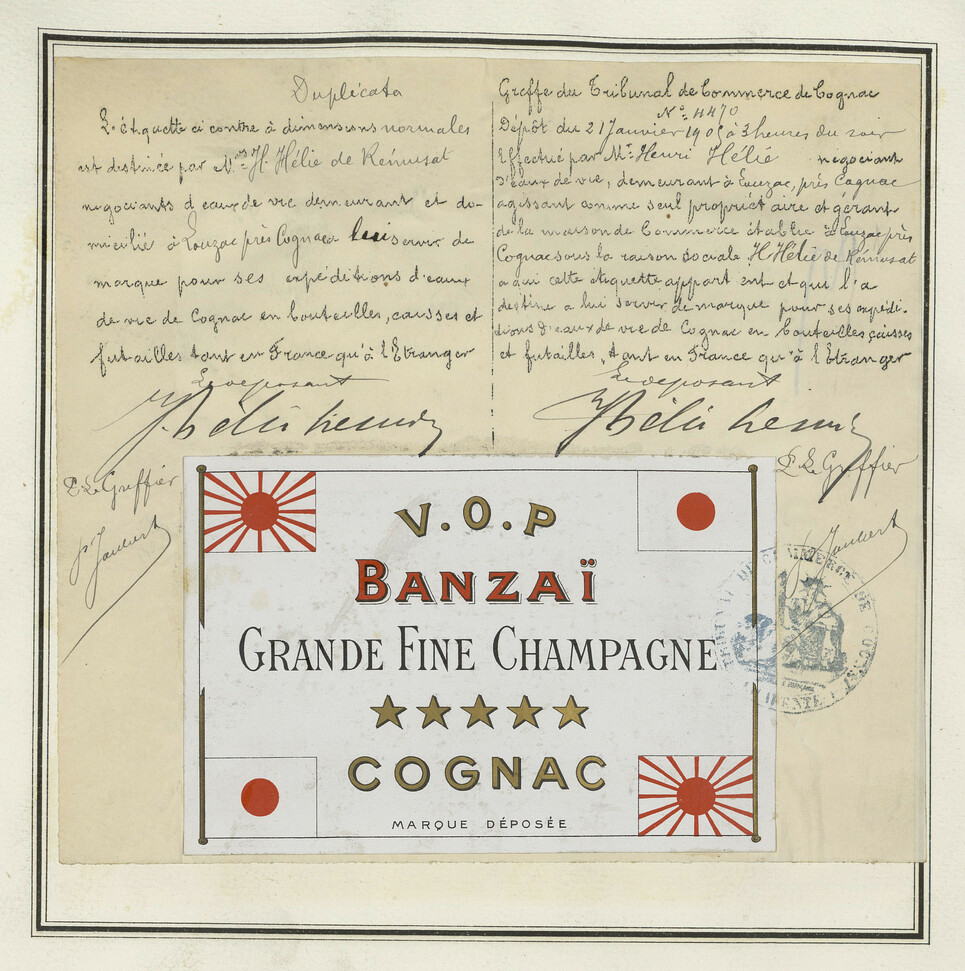 Duplicata
L'étiquette ci contre à dimensions normales
est destinée par Mrs H. Hélie de Rémusat
négociants d'eaux de vie demeurant et do-
micilié à Louzac près Cognac à lui servir de
marque pour ses expéditions d'eaux
de vie de Cognac en bouteilles, caisses et
futailles tant en France qu'à l'Etranger
Le deposant
P. Le Greffier
Greffe du Tribunal de Commerce de Cognac
No. 4470
Dépôt du 21 Janvier 1905 à 3 heures du soir
Effectué par Mr. Henri Hélie négociant
d'eaux de vie, demeurant à Louzac, près Cognac
agissant comme seul propriétaire et gérant
de la maison de Commerce établie à Louzac près
Cognac sous la raison sociale H. Hélie de Rémusat
a qui cette étiquette appartient et qui l'a
destine a lui servir de marque pour ses expédi-
tions d'eaux de vie de Cognac en bouteilles, caisses
et futailles, tant en France qu'à l'Etranger
Le deposant
P. Le Greffier
V.O.P
BANZAÏ
GRANDE FINE CHAMPAGNE
COGNAC
MARQUE DÉPOSÉE
TRIBUNAL DE COMMERCE DE COGNAC